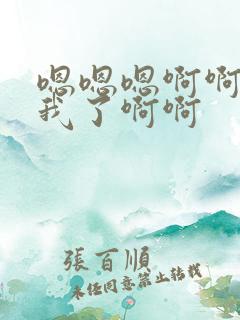 嗯嗯嗯啊啊
我了啊啊
張百順
未任同意禁止轉載